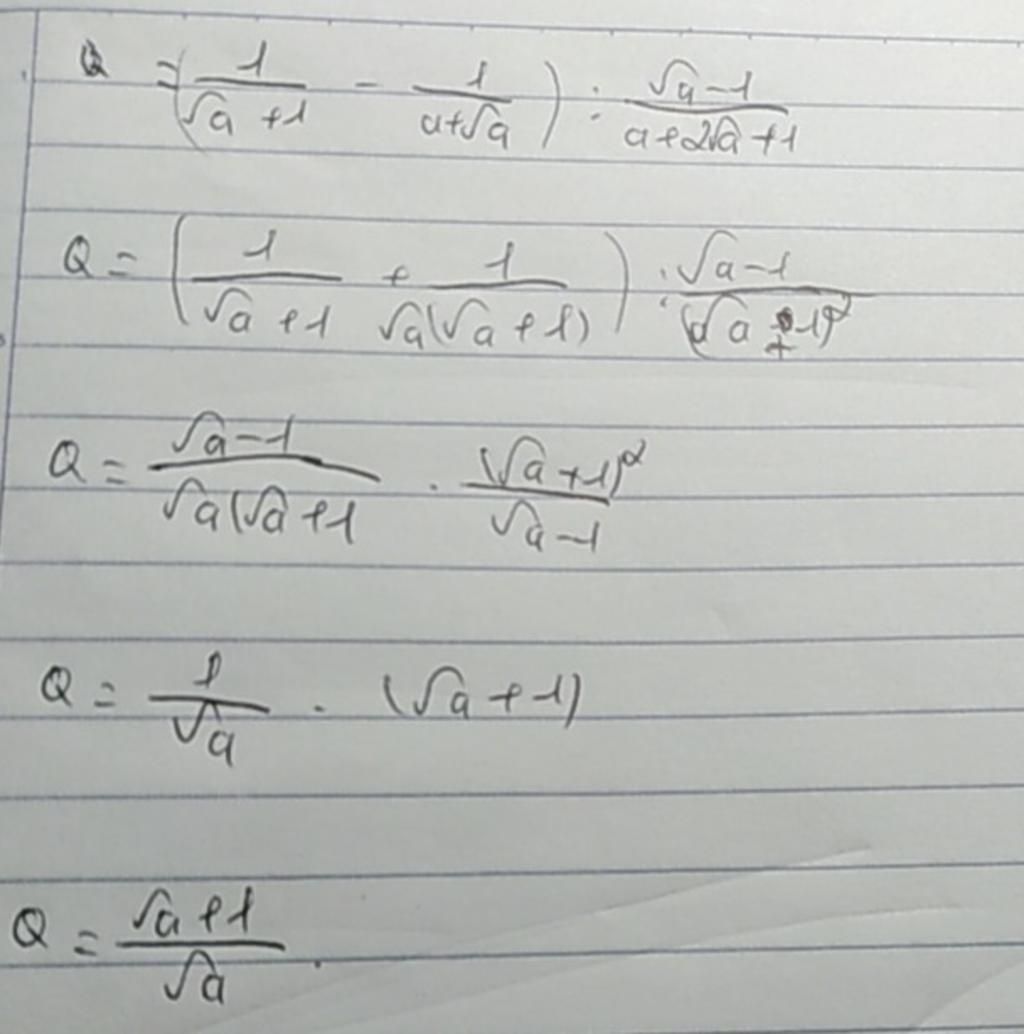 Q = (1/(√a + 1) - 1/(a+√a)) : (√a - 1)/(a+2√a+1)
Q = (1/(√a + 1) + 1/(√a(√a + 1))) : (√a - 1)/(√a + 1)²
Q = (√a - 1)/(√a(√a + 1) . (√a + 1)²/(√a - 1)
Q = 1/√a . (√a + 1)
Q = (√a + 1)/√a .